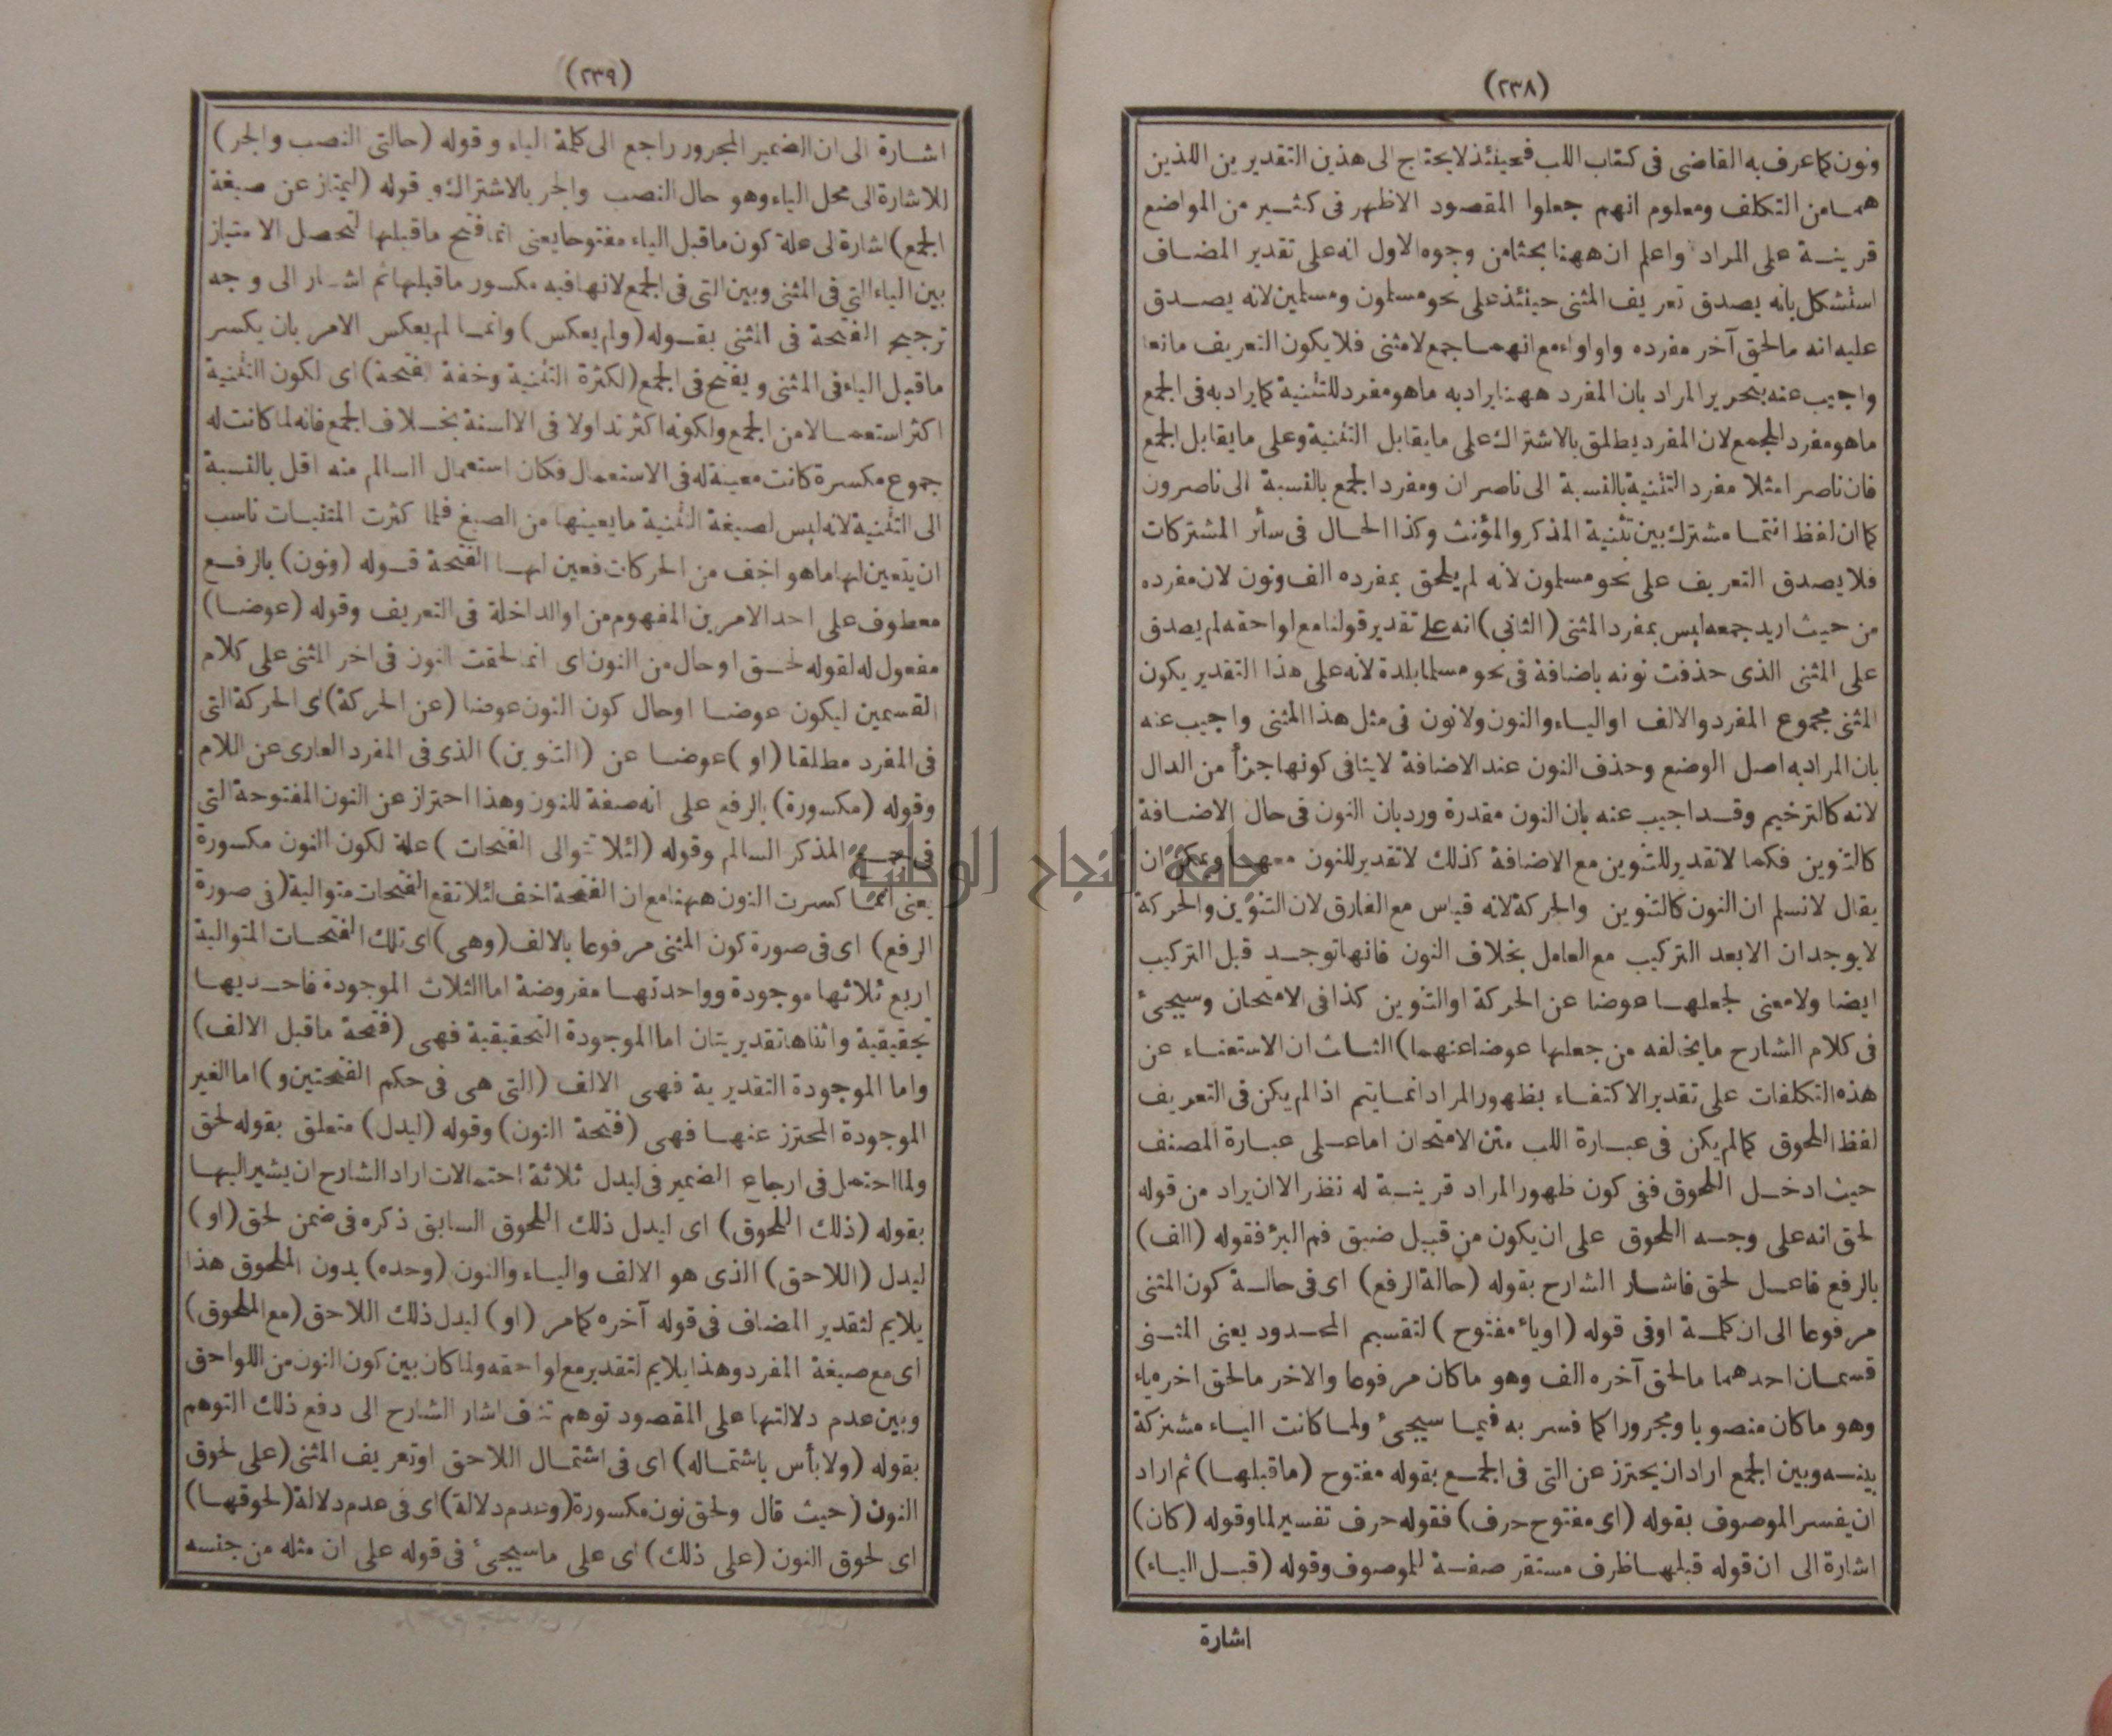 (٢٣٨)
ونون كما عرف به القاضى فى كتاب اللب فحينئذ لا يحتاج الى هذين التقديرين اللذين
هما من التكلف ومعلوم انهم جعلوا المقصود الاظهر فى كثير من المواضع
قرينة على المراد واعلم ان ههنا بحثا من وجوه الاول انه على تقدير المضاف
استشكل بانه يصدق تعريف المثنى حينئذ على نحو مسلمون ومسلمين لانه يصدق
عليه انه مالحق آخر مفرده واو اوياء مع انهما جمع لا مثنى فلا يكون التعريف مانعا
واجيب عنه بتحرير المراد بان المفرد ههنا يراد به ماهو مفرد للتثنية كما يراد به فى الجمع
ماهو مفرد للجمع لان المفرد يطلق بالاشتراك على مايقابل التثنية وعلى مايقابل الجمع
فان ناصرا مثلا مفرد التثنية بالنسبة الى ناصران ومفرد الجمع بالنسبة الى ناصرون
كما ان لفظ انتما مشترك بين تثنية المذكر والمؤنث وكذا الحال فى سائر المشتركات
فلا يصدق التعريف على نحو مسلمون لانه لم يلحق بمفرده الف ونون لان مفرده
من حيث اريد جمعه ليس بمفرد المثنى (الثانى) انه على تقدير قولنا مع لواحقه لم يصدق
على المثنى الذى حذفت نونه باضافة فى نحو مسلما بلدة لانه على هذا التقدير يكون
المثنى مجموع المفرد والالف او الياء والنون ولا نون فى مثل هذا المثنى واجيب عنه
بان المراد به اصل الوضع وحذف النون عند الاضافة لا ينافى كونها جزأ من الدال
لانه كالترخيم وقد اجيب عنه بان النون مقدرة ورد بان النون فى حال الاضافة
كالتنوين فكما لا تقدير للتنوين مع الاضافة كذلك لا تقدير للنون معها ويمكن ان
يقال لا نسلم ان النون كالتنوين والحركة لانه قياس مع الفارق لان التنوين والحركة
لا يوجدان الا بعد التركيب مع العامل بخلاف النون فانها توجد قبل التركيب
ايضا ولا معنى لجعلها عوضا عن الحركة او التنوين كذا فى الامتحان وسيجئ
فى كلام الشارح ما يخالفه من جعلها عوضا عنهما) الثالث ان الاستغناء عن
هذه التكلفات على تقدير الاكتفاء بظهور المراد انما يتم اذا لم يكن فى التعريف
لفظ اللحوق كما لم يكن فى عبارة اللب متن الامتحان اما على عبارة المصنف
حيث ادخل اللحوق ففى كون ظهور المراد قرينة له نظر الا ان يراد من قوله
لحق انه على وجه اللحوق على ان يكون من قبيل ضيق فم البئر فقوله (الف)
بالرفع فاعل لحق فاشار الشارح بقوله (حالة الرفع) اى فى حالة كون المثنى
مرفوعا الى ان كلمة او فى قوله (او ياء مفتوح) لتقسيم المحدود يعنى المثنى
قسمان احدهما مالحق آخره الف وهو ماكان مرفوعا والاخر مالحق اخره ياء
وهو ماكان منصوبا ومجرورا كما فسر به فيما سيجئ ولما كانت الياء مشتركة
بينه وبين الجمع اراد ان يحترز عن التى فى الجمع بقوله مفتوح (ماقبلها) ثم اراد
ان يفسر الموصوف بقوله (اى مفتوح حرف) فقوله حرف تفسير لما وقوله (كان)
اشارة الى ان قوله قبلها ظرف مستقر صفة للموصوف وقوله (قبل الياء)
اشارة
(٢٣٩)
اشارة الى ان الضمير المجرور راجع الى كلمة الياء وقوله (حالتى النصب والجر)
للاشارة الى محل الياء وهو حال النصب والجر بالاشتراك وقوله (ليمتاز عن صيغة
الجمع) اشارة لى علة كون ماقبل الياء مفتوحا يعنى انما فتح ماقبلها لتحصل الامتياز
بين الياء التى فى المثنى وبين التى فى الجمع لانها فيه مكسور ماقبلها ثم اشار الى وجه
ترجيح الفتحة فى المثنى بقوله (ولم يعكس) وانما لم يعكس الامر بان يكسر
ماقبل الياء فى المثنى ويفتح فى الجمع (لكثرة التثنية وخفة الفتحة) اى لكون التثنية
اكثر استعمالا من الجمع ولكونه اكثر تداولا فى الالسنة بخلاف الجمع فانه لما كانت له
جموع مكسرة كانت معينة له فى الاستعمال فكان استعمال السالم منه اقل بالنسبة
الى التثنية لانه ليس لصيغة التثنية مايعينها من الصيغ فلما كثرت المثنيات ناسب
ان يتعين لها ماهو اخف من الحركات فعين لها الفتحة قوله (ونون) بالرفع
معطوف على احد الامرين المفهوم من او الداخلة فى التعريف وقوله (عوضا)
مفعول له لقوله لحق او حال من النون اى انما لحقت النون فى اخر المثنى على كلام
القسمين ليكون عوضا او حال كون النون عوضا (عن الحركة) اى الحركة التى
فى المفرد مطلقا (او) عوضا عن (التنوين) الذى فى المفرد العارى عن اللام
وقوله (مكسورة) بالرفع على انه صفة للنون وهذا احتراز عن النون المفتوحة التى
فى جمع المذكر السالم وقوله (لئلا تتوالى الفتحات) علة لكون النون مكسورة
يعنى انما كسرت النون ههنا مع ان الفتحة اخف لئلا تقع الفتحات متوالية (فى صورة
الرفع) اى فى صورة كون المثنى مرفوعا بالالف (وهى) اى تلك الفتحات المتوالية
اربع ثلاثها موجودة وواحدتها مفروضة اما الثلاث الموجودة فاحديها
تحقيقية واثناها تقديريتان اما الموجودة التحقيقية فهى (فتحة ماقبل الالف)
واما الموجودة التقديرية فهى الالف (التى هى فى حكم الفتحتين و) اما الغير
الموجودة المحترز عنها فهى (فتحة النون) وقوله (ليدل) متعلق بقوله لحق
ولما احتمل فى ارجاع الضمير فى ليدل ثلاثة احتمالات اراد الشارح ان يشير اليها
بقوله (ذلك اللحوق) اى ليدل ذلك اللحوق السابق ذكره فى ضمن لحق (او)
ليدل (اللاحق) الذى هو الالف والياء والنون (وحده) بدون الملحوق هذا
يلايم لتقدير المضاف فى قوله آخره كما مر (او) ليدل ذلك اللاحق (مع الملحوق)
اى مع صيغة المفرد وهذا يلايم لتقدير مع لواحقه ولما كان بين كون النون من اللواحق
وبين عدم دلالتها على المقصود توهم تناف اشار الشارح الى دفع ذلك التوهم
بقوله (ولا بأس باشتماله) اى فى اشتمال اللاحق او تعريف المثنى (على لحوق
النون) حيث قال ولحق نون مكسورة (وعدم دلالة) اى فى عدم دلالة (لحوقها)
اى لحوق النون (على ذلك) اى على ماسيجئ فى قوله على ان مثله من جنسه
جامعة النجاح الوطنية